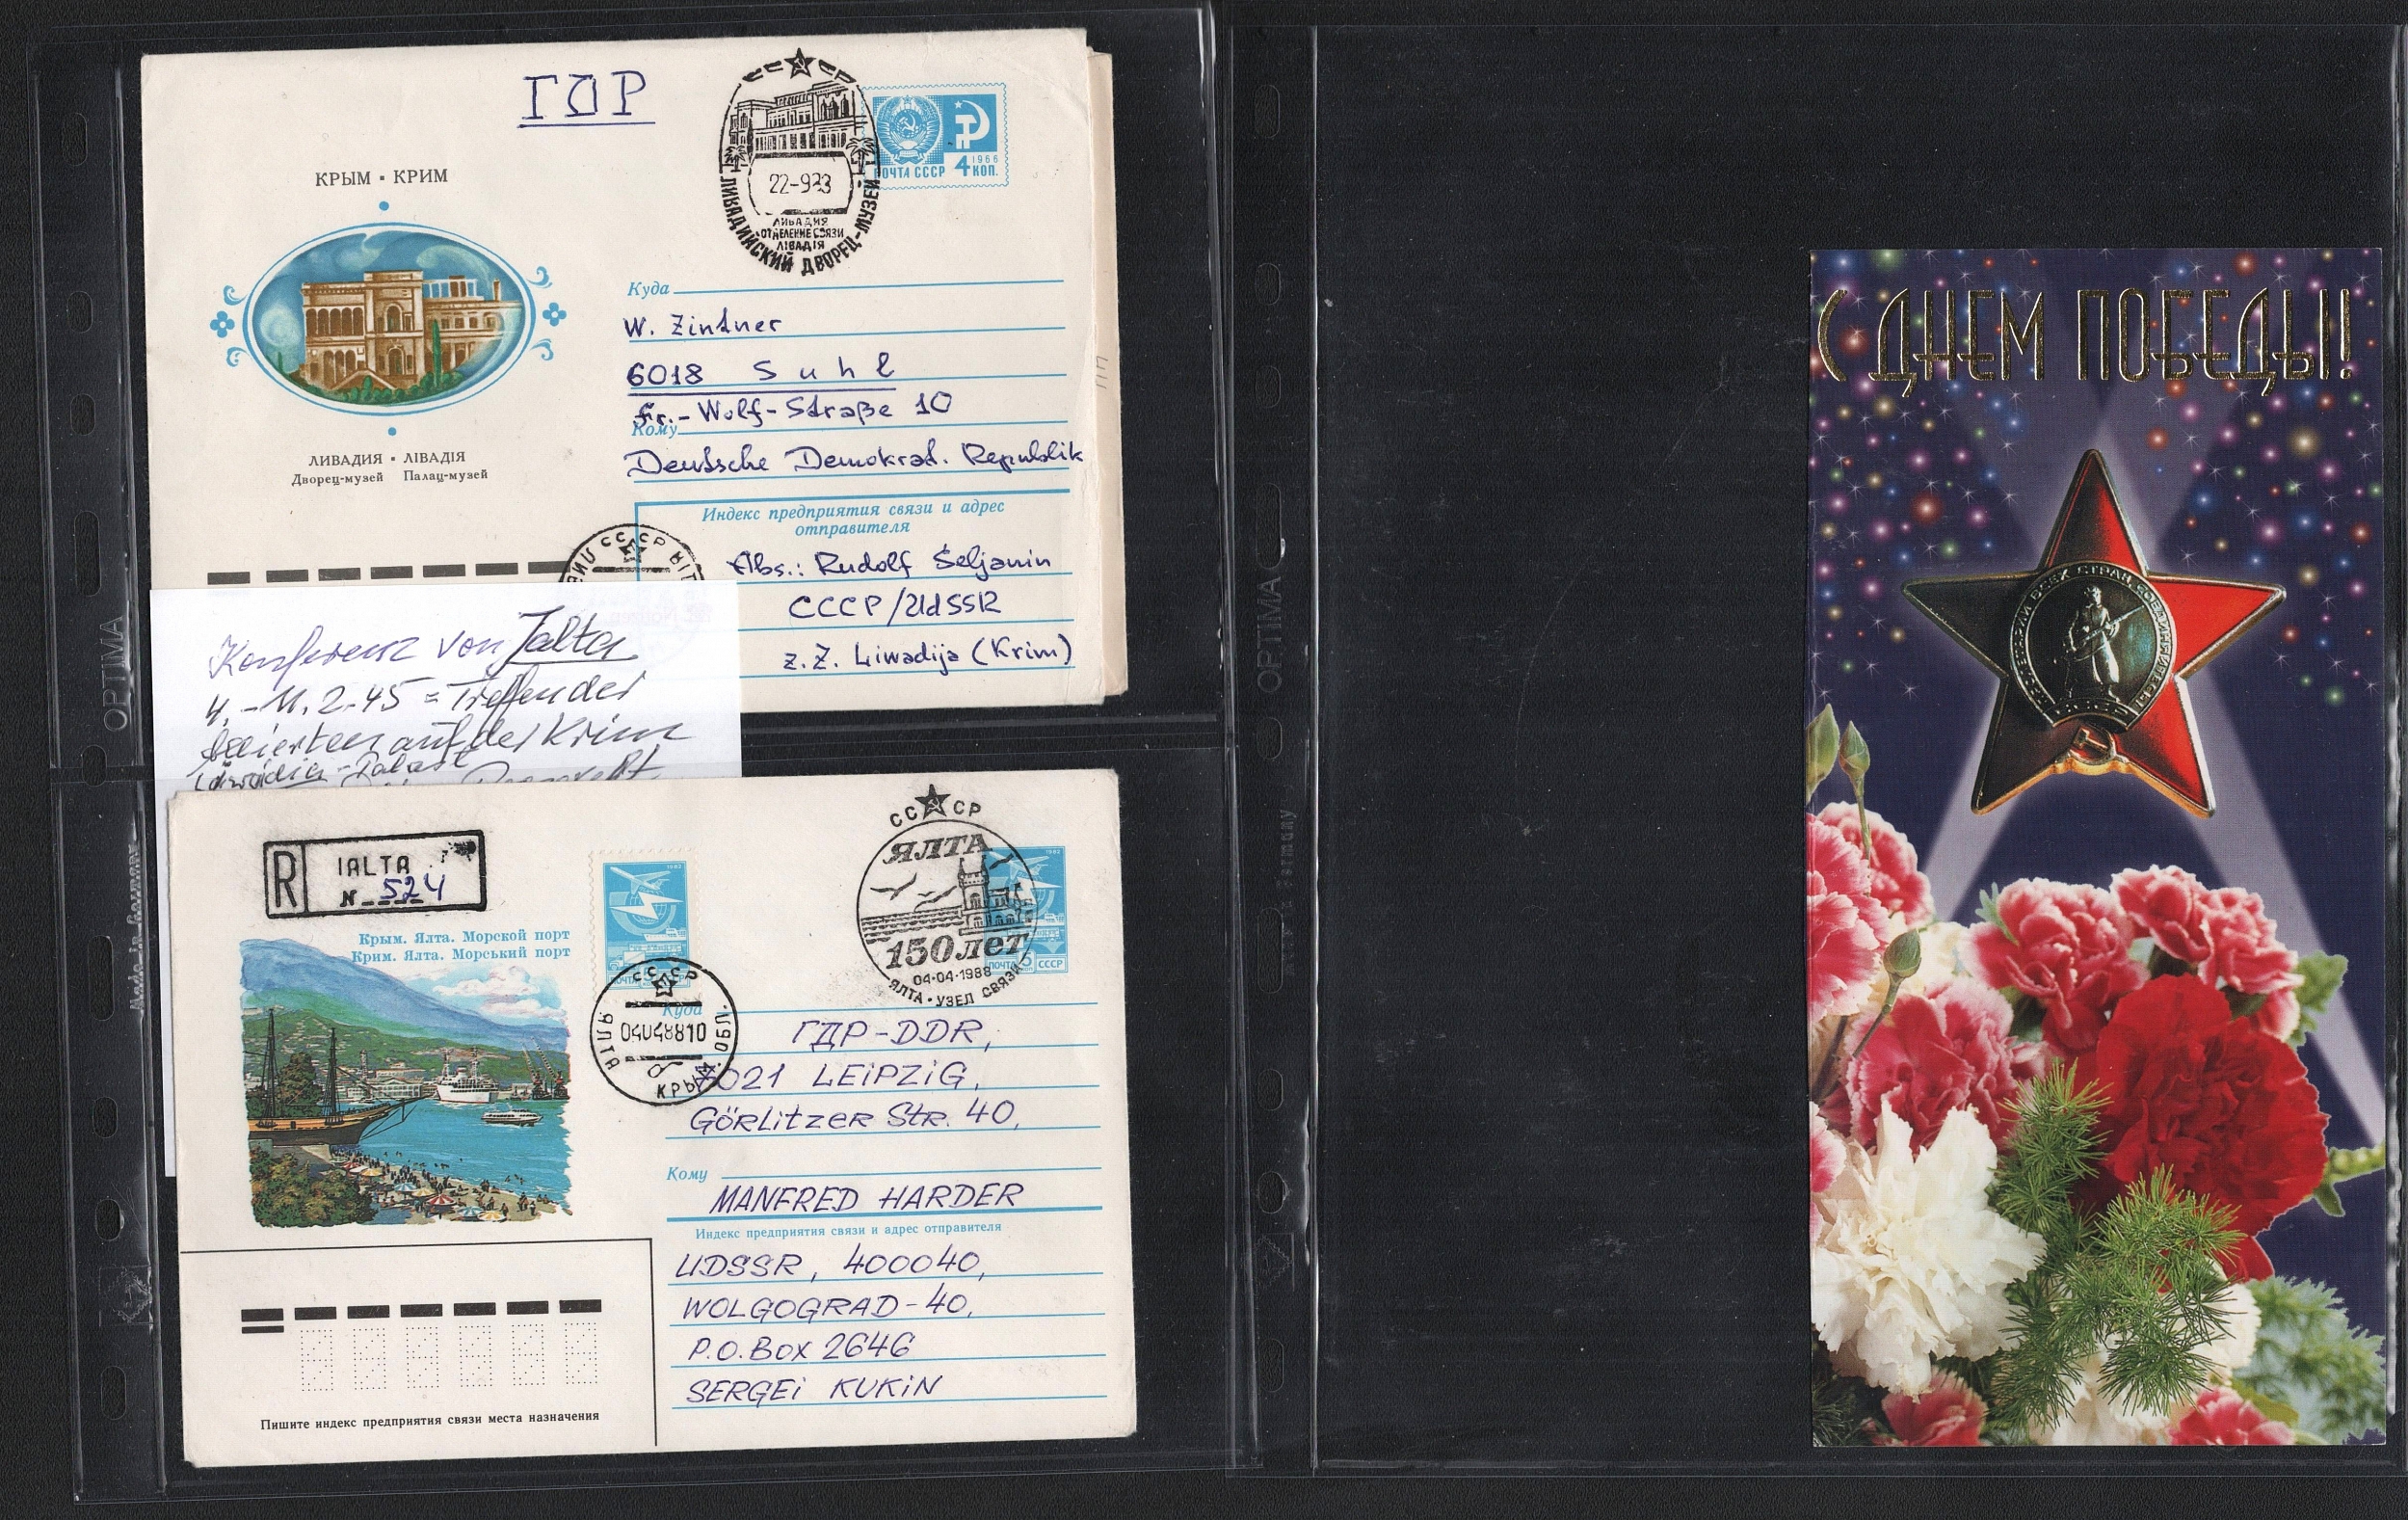 ГДР
СССР
ЛИВАДИЙСКИЙ ДВОРЕЦ-МУЗЕЙ
ЛИВАДИЯ
ОТДЕЛЕНИЕ СВЯЗИ
ЛІВАДІЯ
1966
ПОЧТА СССР 4 КОП.
КРЫМ • КРИМ
ЛИВАДИЯ • ЛІВАДІЯ
Дворец-музей Палац-музей
Куда
W. Zintner
6018 Suhl
Fr.-Wolf-Straße 10
Кому
Deutsche Demokrat. Republik
Индекс предприятия связи и адрес
отправителя
Abs.: Rudolf Seljanin
СССР/UdSSR
z.Z. Liwadija (Krim)
СССР
Konferenz von Jalta
4.-11.2.45 = Treffen der
Alliierten auf der Krim
Palast
OPTIMA
R
IALTA
N 524
Крым. Ялта. Морской порт
Крим. Ялта. Морський порт
1982
СССР
ЯЛТА
150 лет
04·04·1988
ЯЛТА · УЗЕЛ СВЯЗИ
1982
ПОЧТА 5 СССР
СССР
ЯЛТА КРЫМ. ОБЛ.
04048810
Куда
ГДР-DDR,
7021 LEIPZIG,
GÖRLITZER STR. 40,
Кому
MANFRED HARDER
Индекс предприятия связи и адрес отправителя
UDSSR, 400040,
WOLGOGRAD-40,
P.O.Box 2646
SERGEI KUKIN
Пишите индекс предприятия связи места назначения
OPTIMA
С ДНЕМ ПОБЕДЫ!
ПРОЛЕТАРИИ ВСЕХ СТРАН, СОЕДИНЯЙТЕСЬ!
СССР